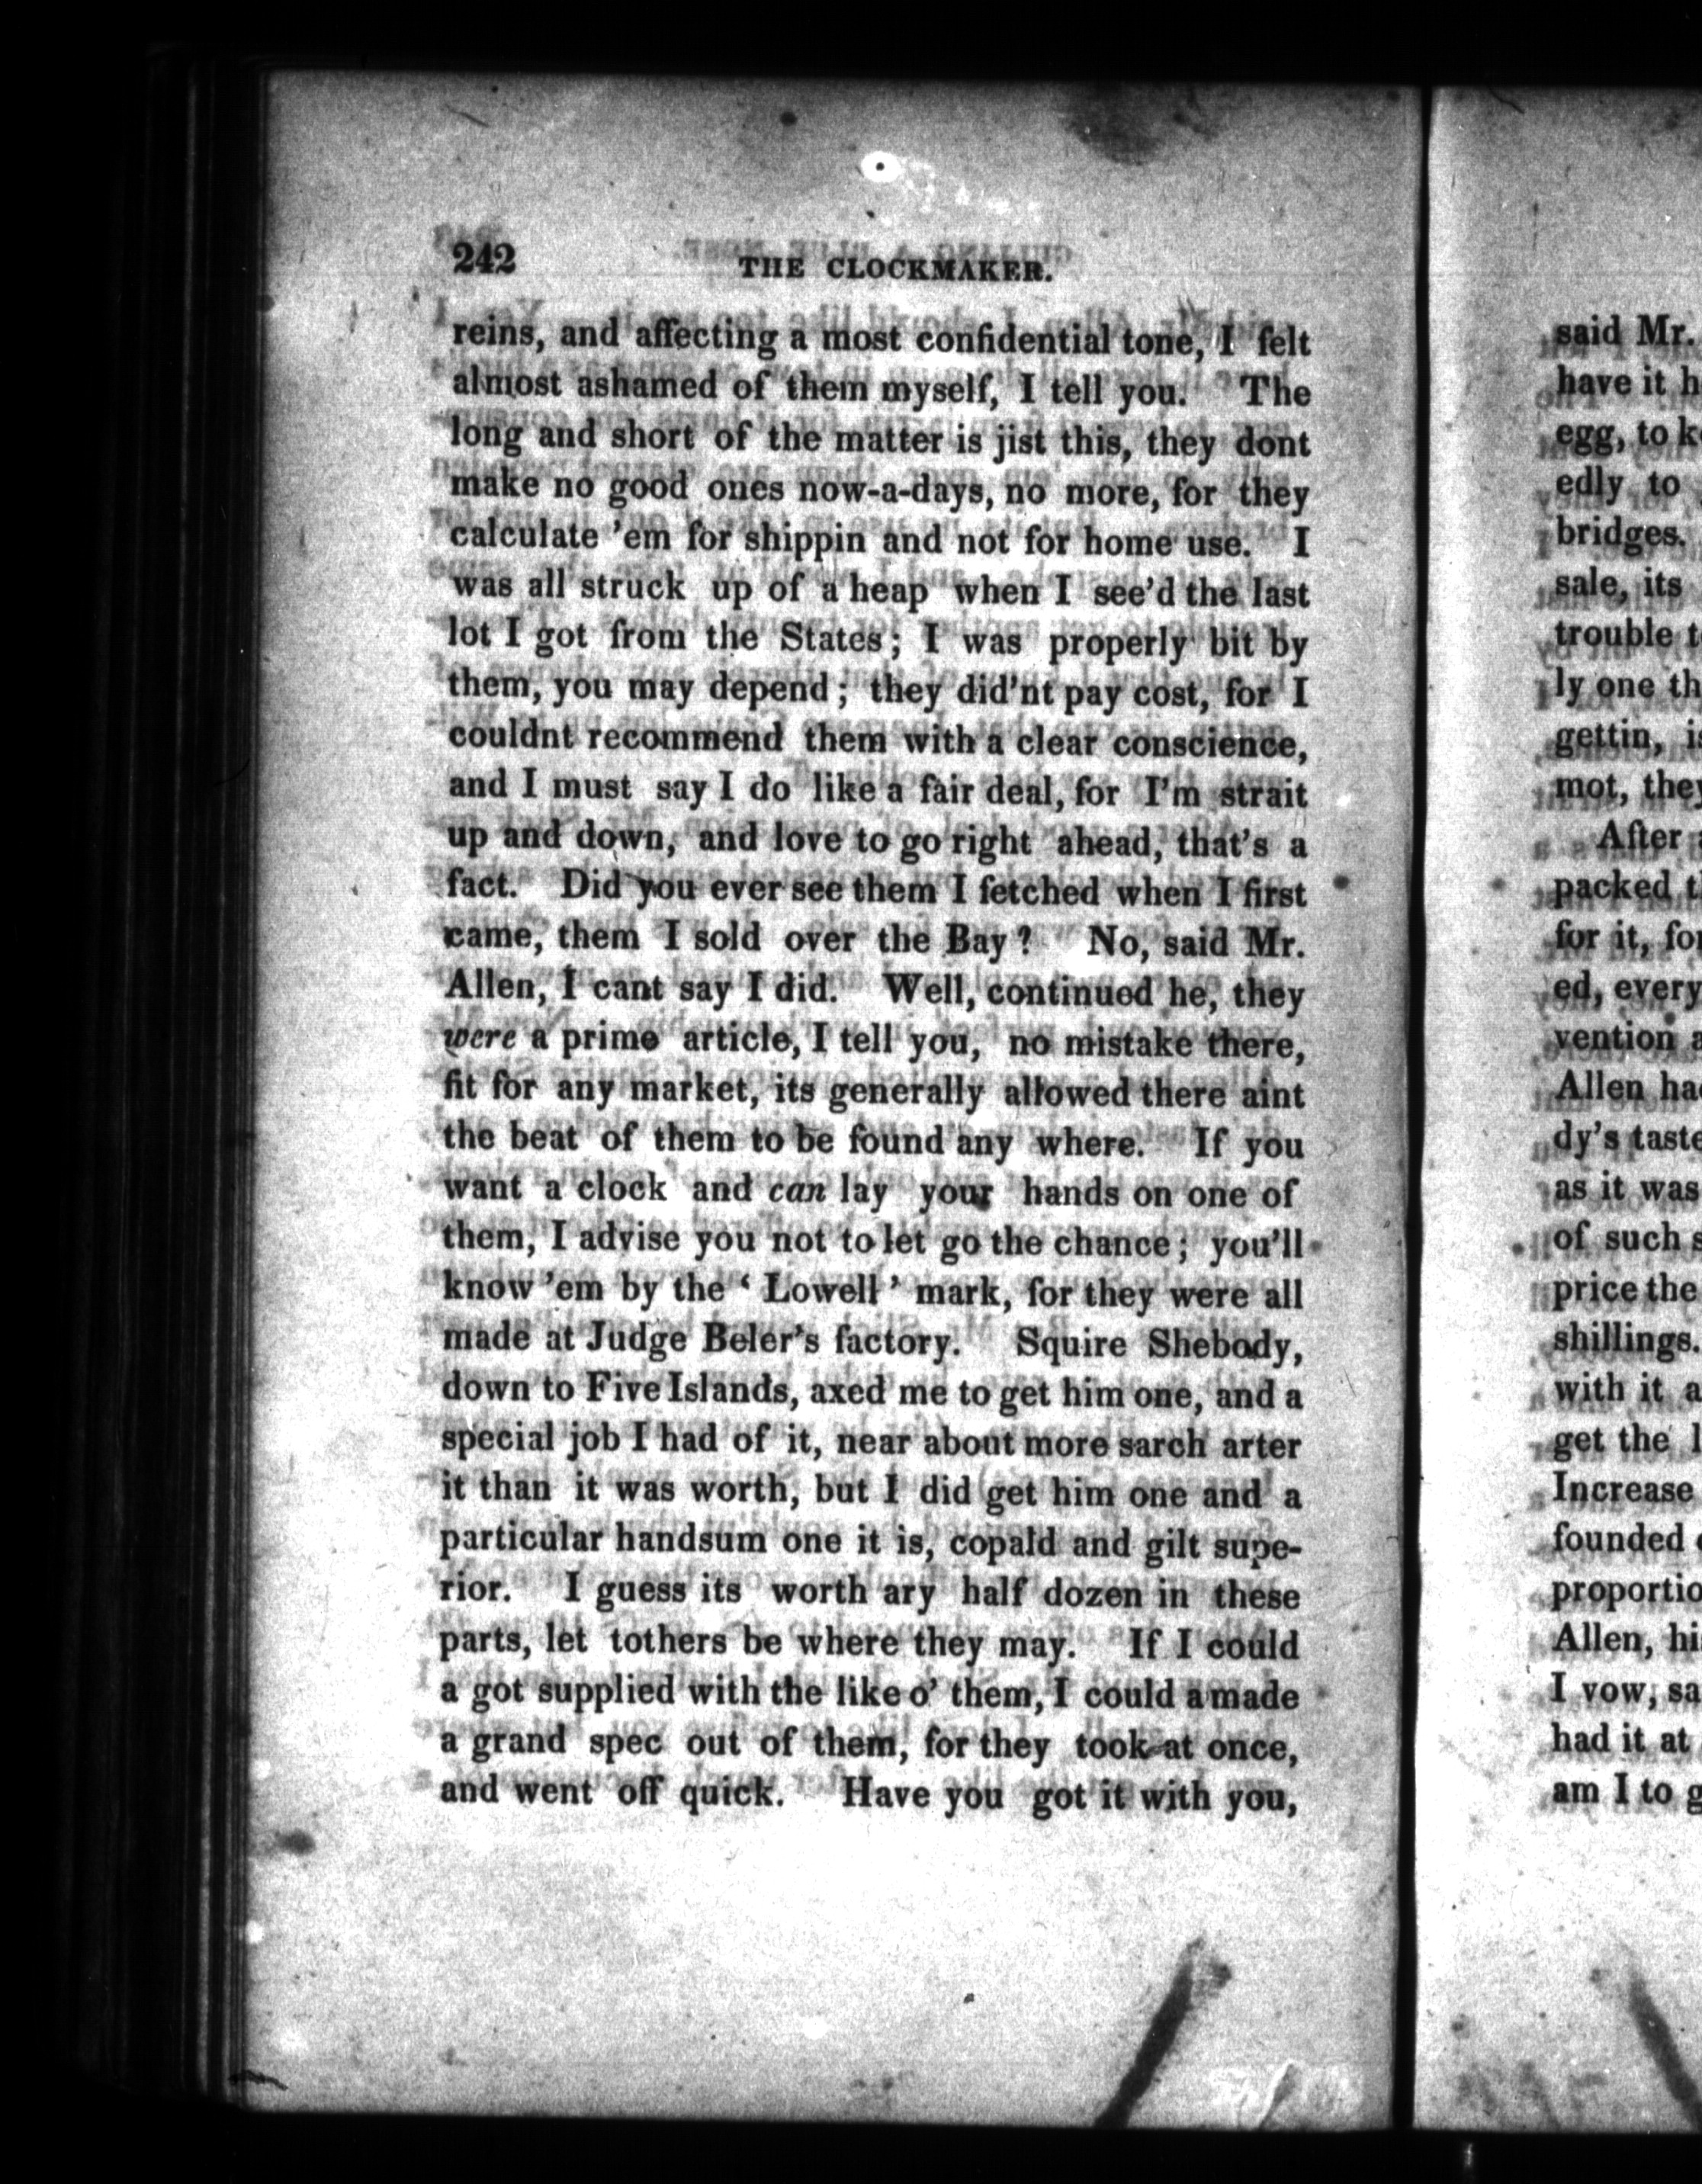 242 THE CLOCKMAKER.
reins, and affecting a most confidential tone, I felt
almost ashamed of them myself, I tell you. The
long and short of the matter is jist this, they dont
make no good ones now-a-days, no more, for they
calculate 'em for shippin and not for home use. I
was all struck up of a heap when I see'd the last
lot I got from the States; I was properly bit by
them, you may depend; they did'nt pay cost, for I
couldnt recommend them with a clear conscience,
and I must say I do like a fair deal, for I'm strait
up and down, and love to go right ahead, that's a
fact. Did you ever see them I fetched when I first
came, them I sold over the Bay? No, said Mr.
Allen, I cant say I did. Well, continued he, they
were a prime article, I tell you, no mistake there,
fit for any market, its generally allowed there aint
the beat of them to be found any where. If you
want a clock and can lay your hands on one of
them, I advise you not to let go the chance; you'll
know 'em by the ‘ Lowell ’ mark, for they were all
made at Judge Beler's factory. Squire Shebody,
down to Five Islands, axed me to get him one, and a
special job I had of it, near about more sarch arter
it than it was worth, but I did get him one and a
particular handsum one it is, copald and gilt supe-
rior. I guess its worth ary half dozen in these
parts, let tothers be where they may. If I could
a got supplied with the like o' them, I could a made
a grand spec out of them, for they took at once,
and went off quick. Have you got it with you,
said Mr.
have it h
egg, to k
edly to
bridges.
sale, its
trouble t
ly one th
gettin, is
mot, they
After a
packed th
for it, for
ed, every
vention a
Allen had
dy's taste
as it was
of such s
price the
shillings.
with it a
get the l
Increase
founded
proportio
Allen, his
I vow, sa
had it at
am I to g